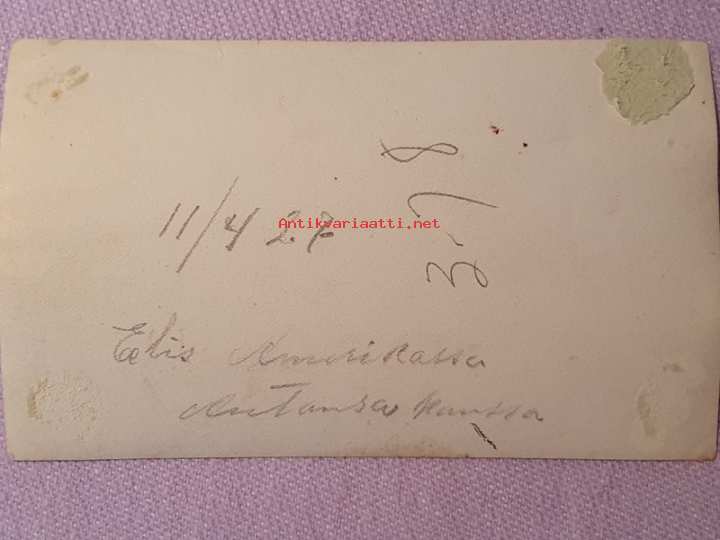 8
3-7 8
11/4 27
Antikvariaatti.net
Elis Amerikassa
Autonsa kanssa